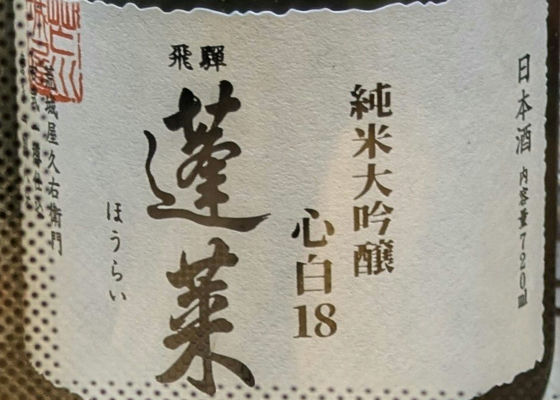 日本酒 内容量720ml
純米大吟醸
心白18
飛騨
蓬莱
ほうらい
蓋城屋久右衛門